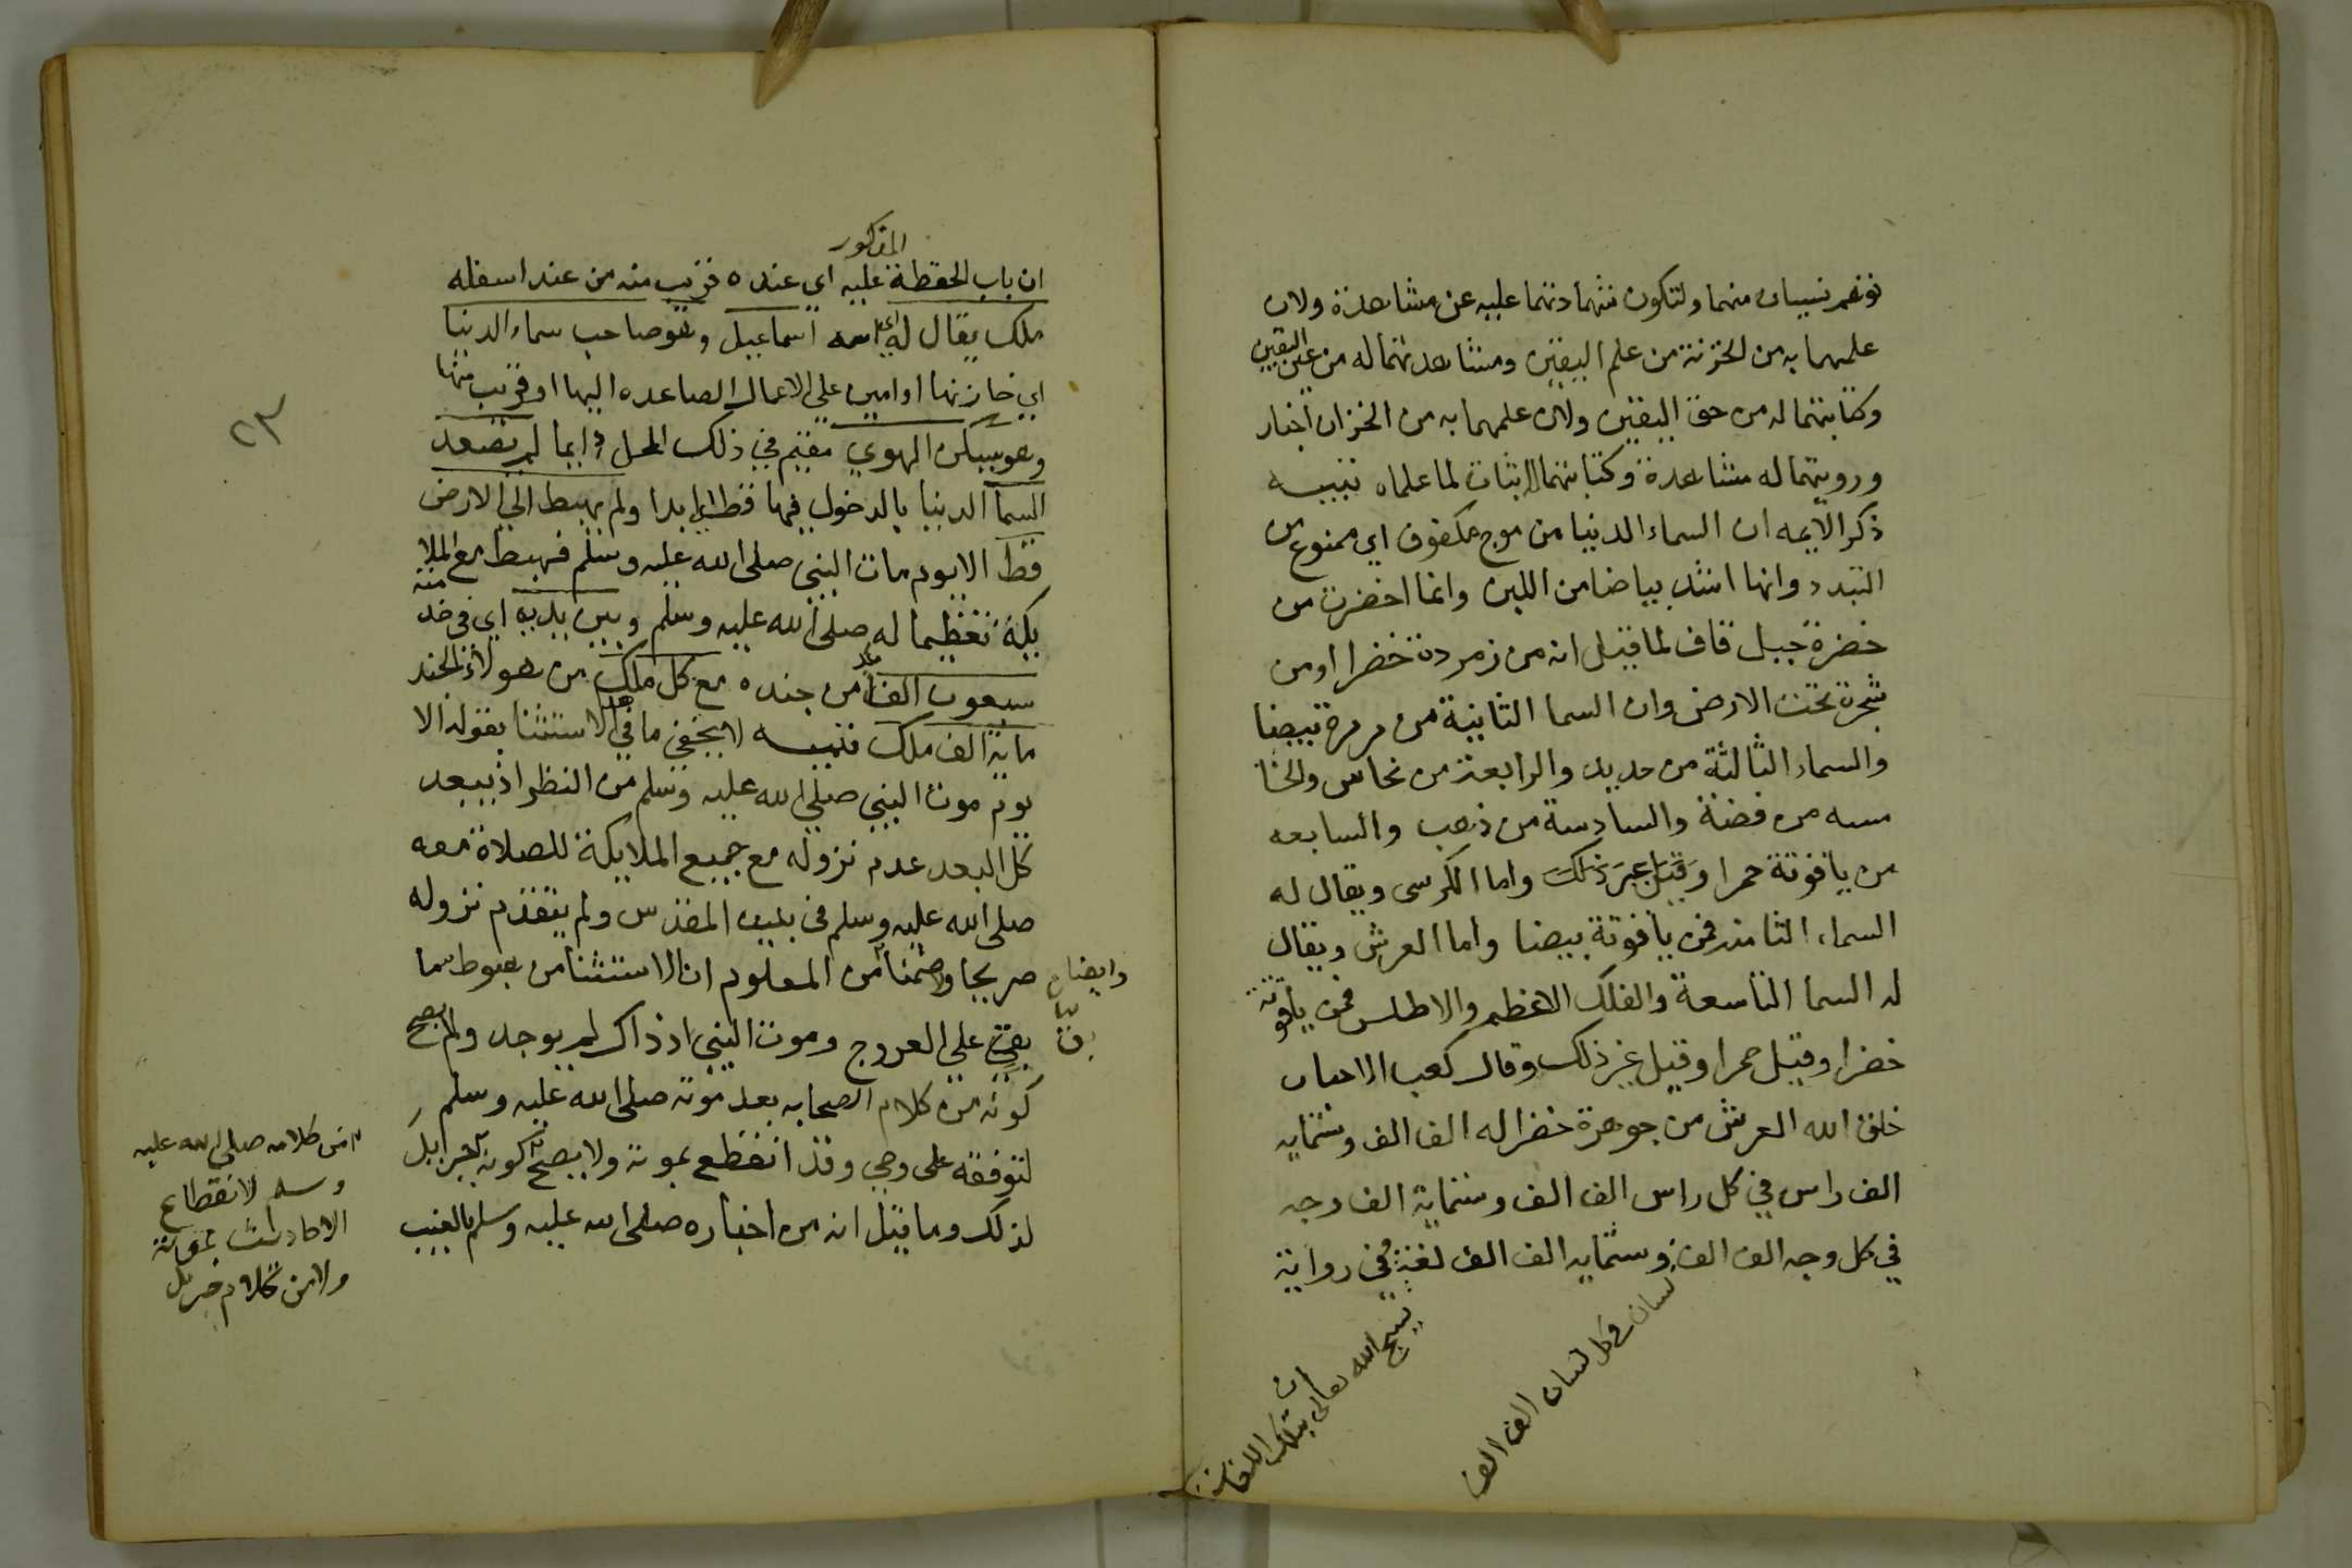 توهم نسيان منهما ولتكون شهادتهما عليه عن مشاهدة ولان
علمهما به من الخزنة من علم اليقين ومشاهدتهما له من عين اليقين
وكتابتهما له من حق اليقين ولان علمهما به من الخزان اخبار
ورويتهما له مشاهدة وكتابتهما اثبات لما علماه تنبيه
ذكر الايمه ان السماء الدنيا من موج مكفوف اي ممنوع من
التبدد وانها اشد بياضا من اللبن وانما اخضرت من
خضرة جبل قاف لما قيل انه من زمردة خضرا او من
شجرة تحت الارض وان السما الثانية من مرمرة بيضا
والسماء الثالثة من حديد والرابعة من نحاس والخا
مسه من فضة والسادسة من ذهب والسابعه
من ياقوتة حمرا وقيل غير ذلك واما الكرسى ويقال له
السماء الثامنه فمن ياقوتة بيضا واما العرش ويقال
له السما التاسعة والفلك الاعظم والاطلس فمن ياقوتة
خضرا وقيل حمرا وقيل غير ذلك وقال كعب الاحبار
خلق الله العرش من جوهرة خضرا له الف الف وستمايه
الف راس في كل راس الف الف وستماية الف وجه
في كل وجه الف الف وستمايه الف الف لغة وفى رواية
لسان في كل لسان الف الف
يسبح الله تعالى بتلك اللغات
المذكور
ان باب الحفظة عليه اي عنده قريب منه من عند اسفله
ملك يقال له اي اسمه اسماعيل وهو صاحب سماء الدنيا
اي خازنها او امين على الاعمال الصاعده اليها او قريب منها
وهو يسكن الهوي مقيم في ذلك المحل دايما لم يصعد
السما الدنيا بالدخول فيها قط ابدا ولم يهبط الي الارض
قط الا يوم مات النبي صلى الله عليه وسلم فهبط مع الملا
يكة تعظيما له صلى الله عليه وسلم وبين يديه اي في خدمته
سبعون الف ملك من جنده مع كل ملك من هولاء الجند
ماية الف ملك تنبيه لا يخفي ما في هذا الاستثنا بقوله الا
يوم موت النبي صلي الله عليه وسلم من النظر اذ يبعد
كل البعد عدم نزوله مع جميع الملايكة للصلاة معه
صلى الله عليه وسلم فى بيت المقدس ولم يتقدم نزوله
وايضا صريحا ولا ضمنا من المعلوم ان الاستثنا من هبوط سما
بق علي العروج وموت النبي اذ ذاك لم يوجد ولم يصح
كونه من كلام الصحابه بعد موته صلى الله عليه وسلم
لتوقفه على وحي وقد انقطع بموته ولا يصح كونه لجبرايل
لذلك وما قيل انه من اخباره صلى الله عليه وسلم بالغيب
من كلامه صلي الله عليه
وسلم لانقطاع
الاحاديث بموته
ولا من كلام جبريل
٢٣